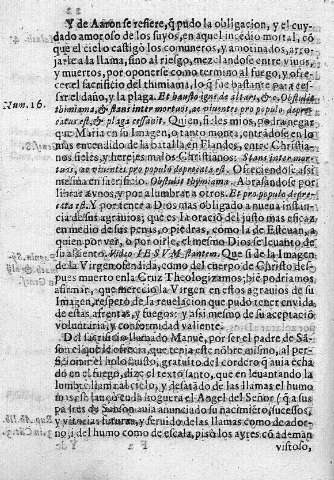 Y de Aaron se refiere, q̃ pudo la obligacion, y el cuy-
dado amoroso de los suyos, en aquel incẽdio mortal, cõ
que el cielo castigò los comuneros, y amotinados, arro-
jarle a la llama, sino al riesgo, mezclandose entre viuos,
y muertos, por oponerse como termino al fuego, y ofre-
cer el sacrificio del thimiama, lo q̃ fue bastante para ces-
sar el daño, y la plaga.
Num. 16.
thimiama, & stans inter mortuos, ac viuentes pro populo depre-
catus est, & plaga cessauit. Quien, si les mios, podra negar
que Maria en su Imagen, o tanto monta, entrãdose en lo
mas encendido de la batalla en Flandes, entre Christia-
nos fieles, y herejes malos Christianos: Stans inter mor-
tuos, ac viuentes pro populo deprecata est. Ofreciendose assi
mesma en sacrificio. Obtulit thymiama. Abrasandose por
librar a vnos, y por alumbrar a otros. Et pro populo depre-
cata est. Y por tener a Dios mas obligado a nueua instan-
cia de sus agrauios; que es la oraciõ del justo mas eficaz,
en medio de sus penas, o piedras, como la de Esteuan, a
quien por ver, o por oirle, el mesmo Dios se leuanto de
su assiento. Video IESVM stantem. Que si de la Imagen
de la Virgen ofendida, como del cuerpo de Christo des-
pues muerto en la Cruz Theologizamos; biẽ podriamos
afirmar, que mereciò la Virgen en estos agrauios de su
Imagen, respeto de la reuelacion que pudo tener embida,
de estas afrentas, y fuegos: y assi mesmo de su aceptaciõ
voluntaria, y conformidad valiente.
Del sacrificio llamado Manuè, por ser el padre de Sã-
son el que le ofrecia, que tenia este nõbre mismo, al per-
ficionar el holocausto, gratuito del cordero q̃ auia echa
do en el fuego, dize el texto santo, que en leuantando la
lumbre llamas al cielo, y desatado de las llamas el humo
mas, se lançò en la hoguera el Angel del Señor (q̃ a sus
padres de Sanson auia anunciado su nacimiẽto, sucessos,
y vitorias futuras, y seruido de las llamas como de ador-
no, i del humo como de escala, pisò los ayres cõ ademan
vistoso,